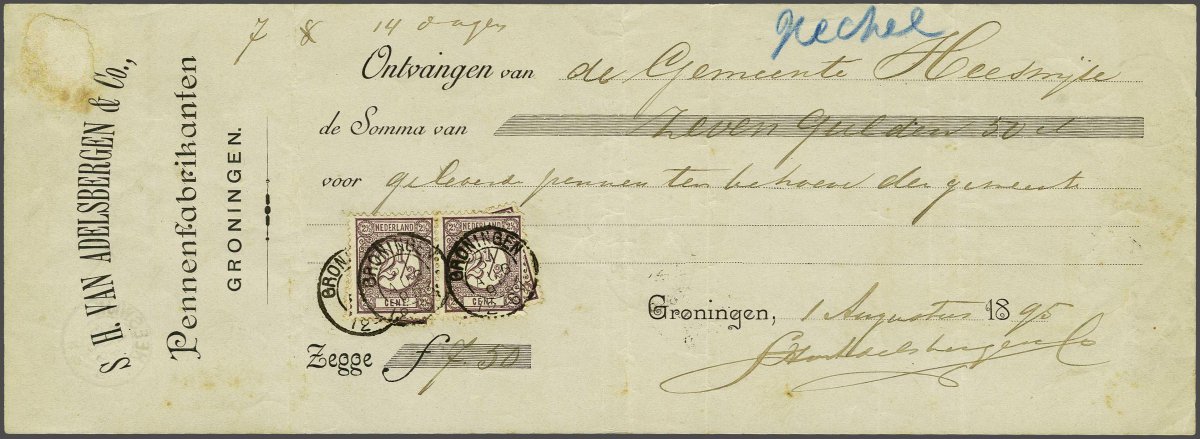 S. H. VAN ADELSBERGEN & Co.,
Pennenfabrikanten
GRONINGEN.
7 8 14 dagen
Hechel
Ontvangen van de Gemeente Heeswijk
de Somma van Zeven Gulden 50 ct
voor geleverd pennen ten behoeve der gemeente
NEDERLAND NEDERLAND
2½ CENT 2½ CENT
GRONINGEN GRONINGEN
Groningen, 1 Augustus 1895
SHvanAdelsbergen & Co
Zegge f 7.50